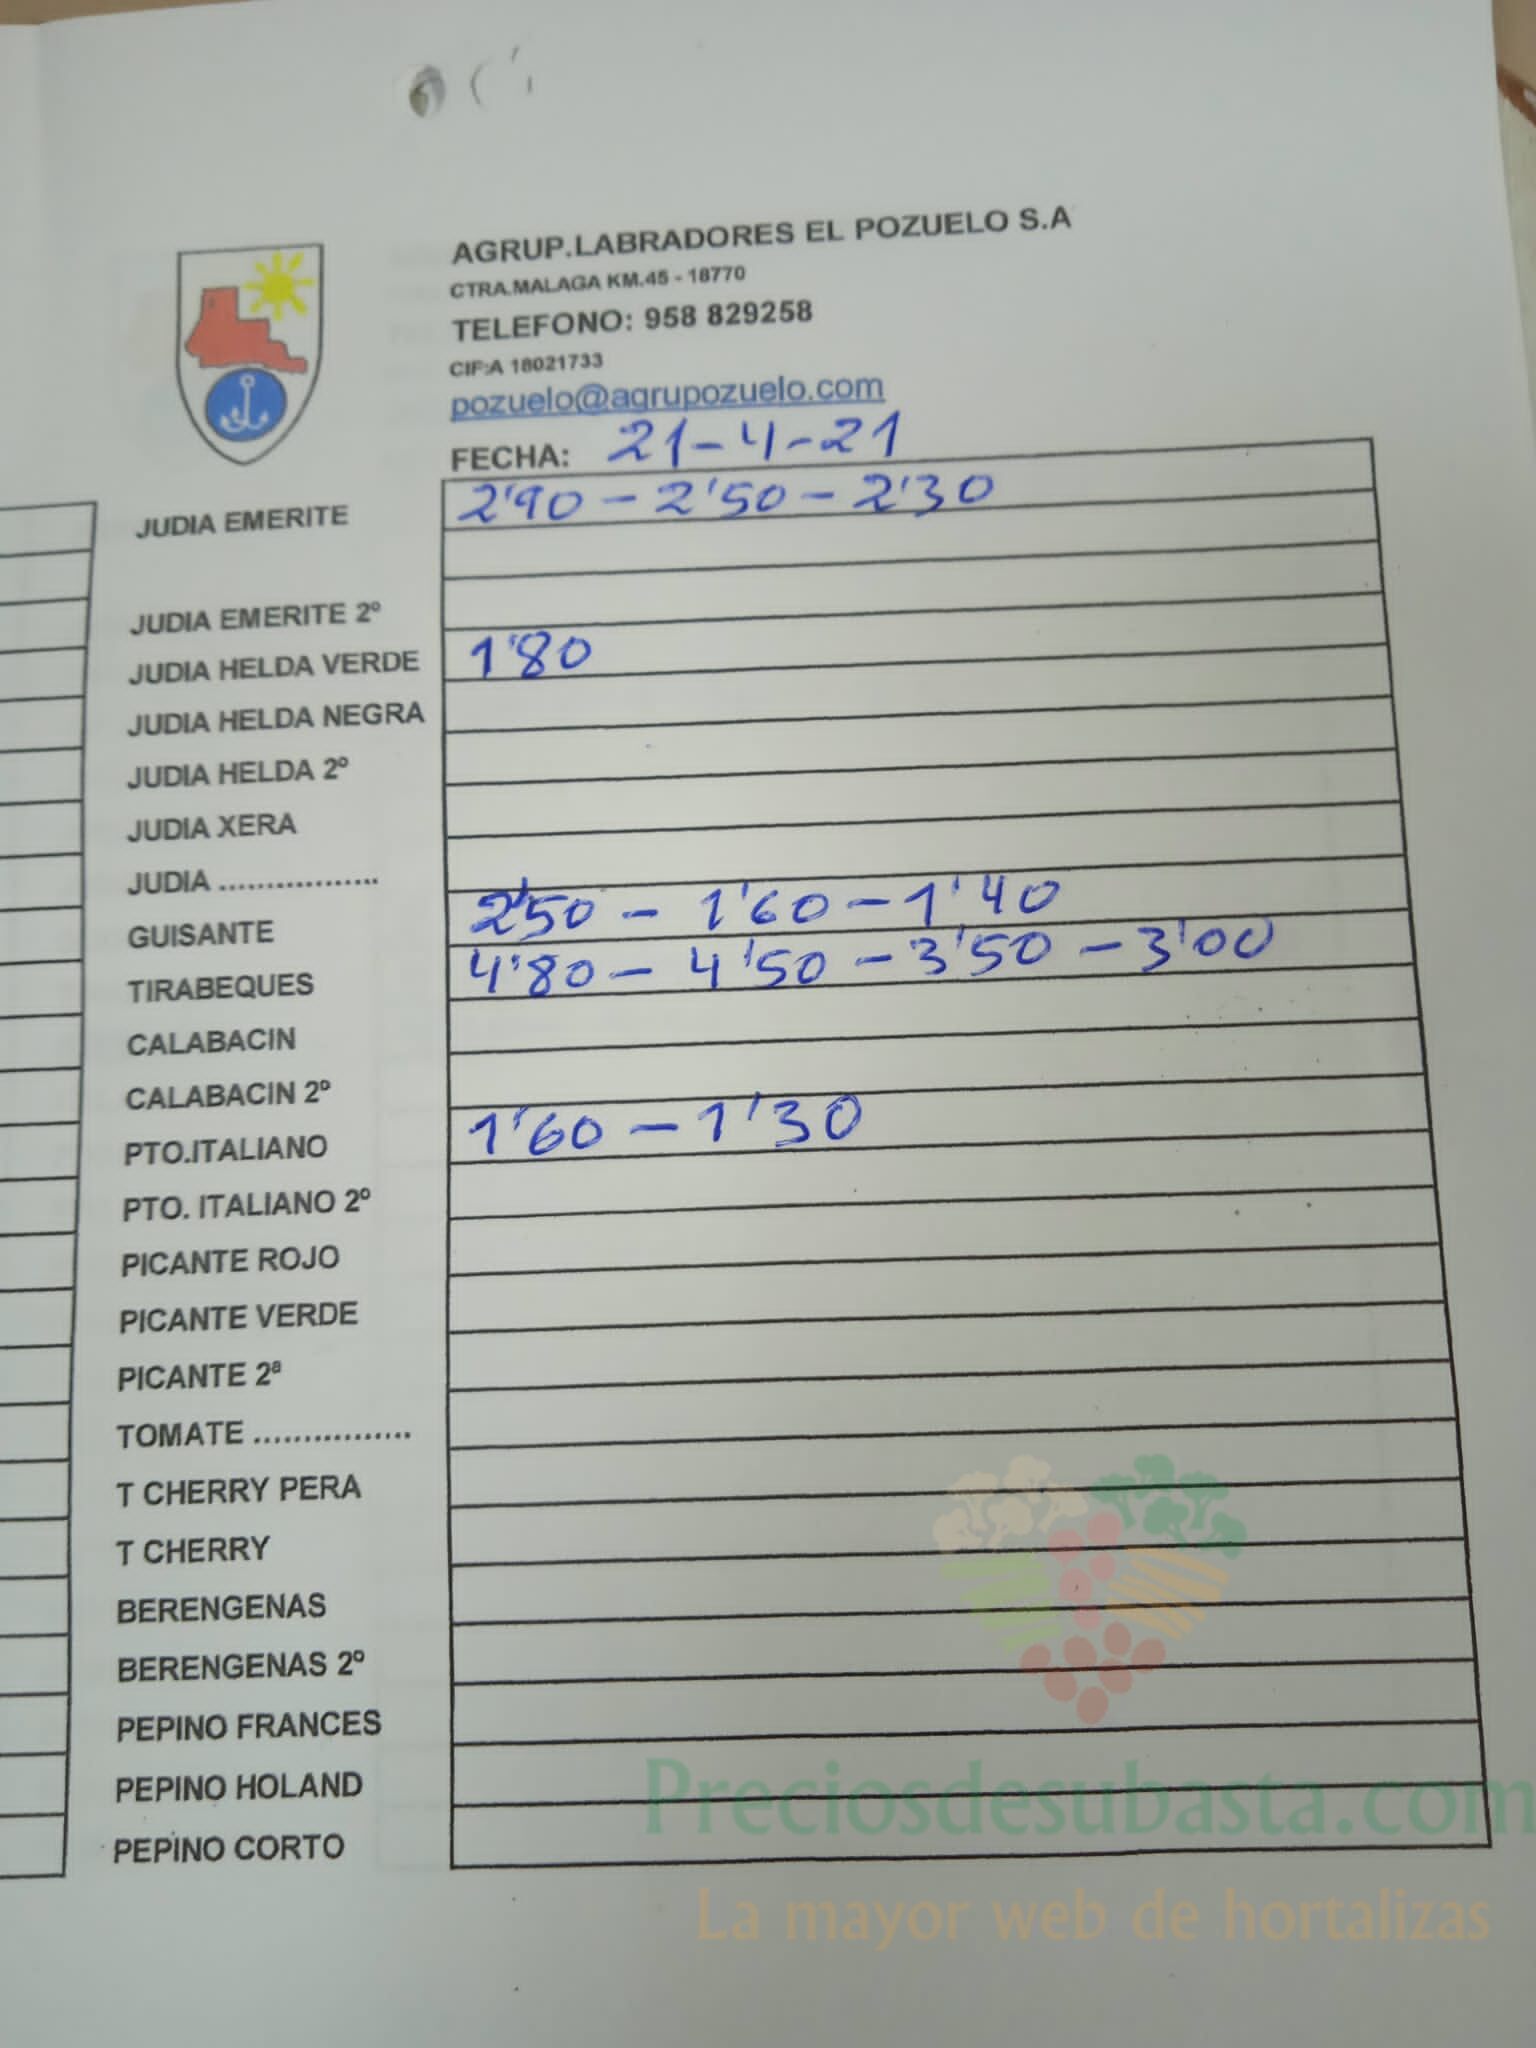 AGRUP.LABRADORES EL POZUELO S.A
CTRA.MALAGA KM.45 - 18770
TELEFONO: 958 829258
CIF:A 18021733
pozuelo@agrupozuelo.com
FECHA: 21-4-21
JUDIA EMERITE 2'90 - 2'50 - 2'30
JUDIA EMERITE 2º
JUDIA HELDA VERDE 1'80
JUDIA HELDA NEGRA
JUDIA HELDA 2º
JUDIA XERA
JUDIA .................
GUISANTE 2'50 - 1'60 - 1'40
TIRABEQUES 4'80 - 4'50 - 3'50 - 3'00
CALABACIN
CALABACIN 2º
PTO.ITALIANO 1'60 - 1'30
PTO. ITALIANO 2º
PICANTE ROJO
PICANTE VERDE
PICANTE 2ª
TOMATE ................
T CHERRY PERA
T CHERRY
BERENGENAS
BERENGENAS 2º
PEPINO FRANCES
PEPINO HOLAND
PEPINO CORTO
Preciosdesubasta.com
La mayor web de hortalizas